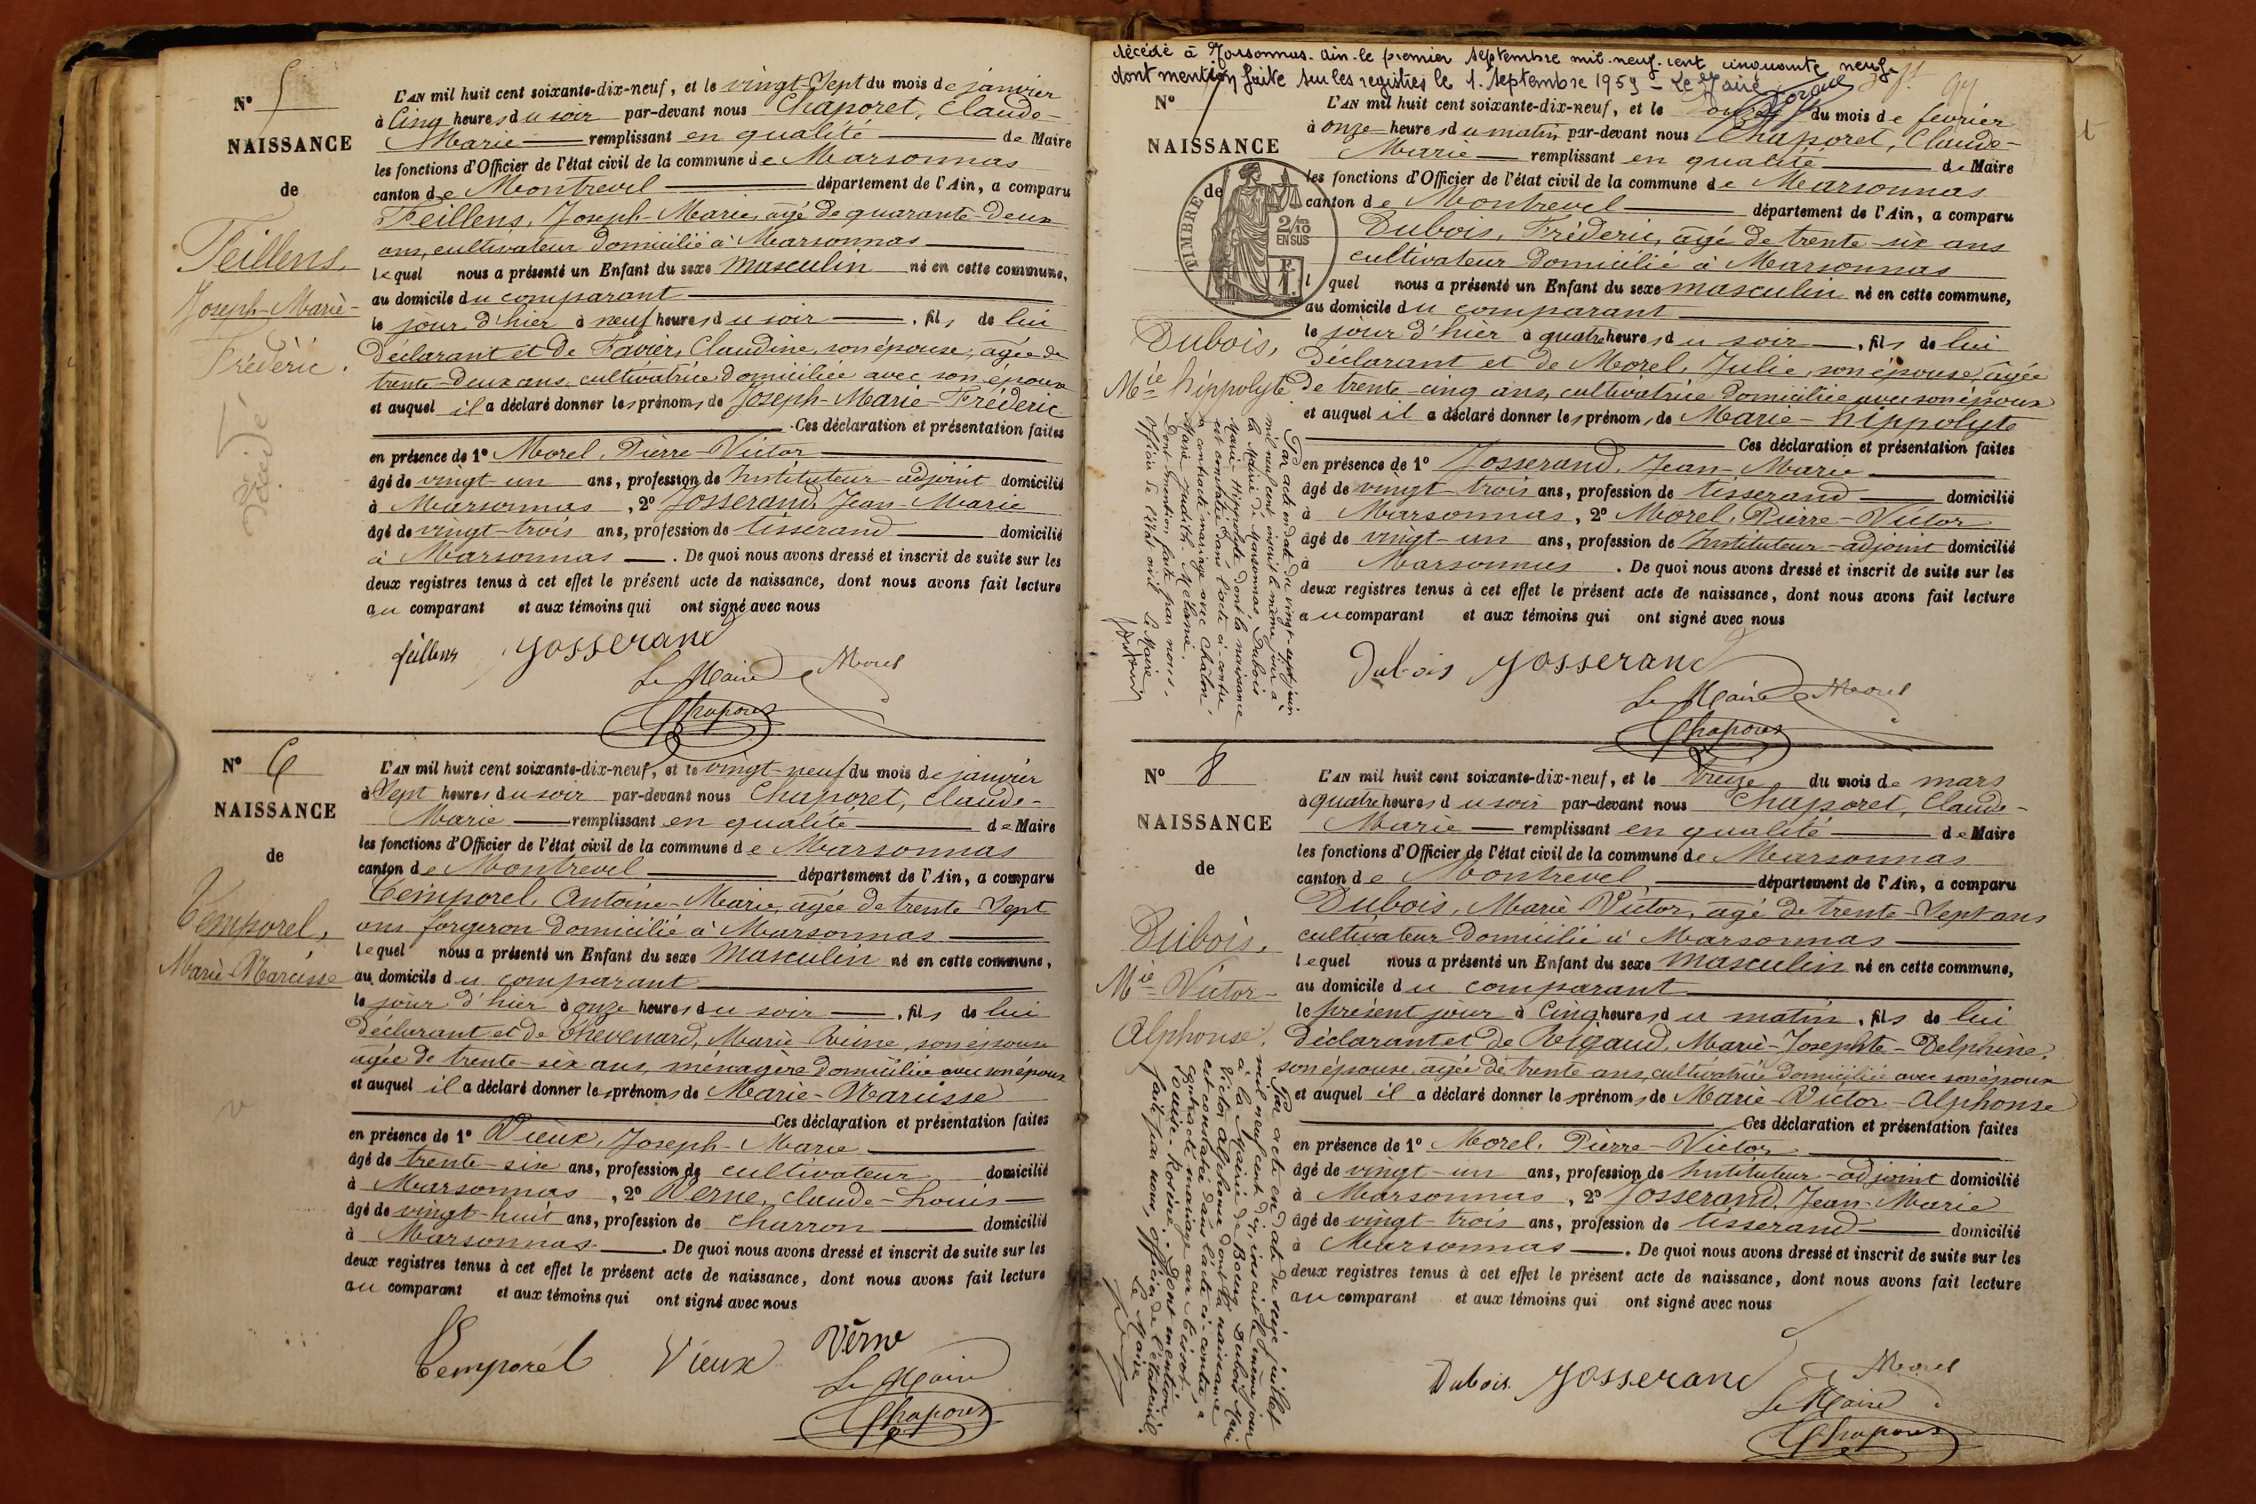 N° 5
NAISSANCE
de
Feillens,
Joseph-Marie-
Fréderic.
Décédé
L'AN mil huit cent soixante-dix-neuf, et le vingt-sept du mois de janvier
à cinq heures du soir par-devant nous Chaporet, Claude-
Marie remplissant en qualité de Maire
les fonctions d'Officier de l'état civil de la commune de Marsonnas
canton de Montrevel département de l'Ain, a comparu
Feillens, Joseph-Marie, âgé de quarante-deux
ans, cultivateur domicilié à Marsonnas
lequel nous a présenté un Enfant du sexe masculin né en cette commune,
au domicile du comparant
le jour d'hier à neuf heures du soir, fils de lui
Déclarant et de Favier, Claudine, son épouse, agée de
trente-deux ans, cultivatrice domiciliée avec son époux
et auquel il a déclaré donner les prénoms de Joseph-Marie-Fréderic
Ces déclaration et présentation faites
en présence de 1° Morel, Pierre-Victor
âgé de vingt-un ans, profession de Instituteur-adjoint domicilié
à Marsonnas, 2° Josserand, Jean-Marie
âgé de vingt-trois ans, profession de tisserand domicilié
à Marsonnas. De quoi nous avons dressé et inscrit de suite sur les
deux registres tenus à cet effet le présent acte de naissance, dont nous avons fait lecture
au comparant et aux témoins qui ont signé avec nous
feillens Josserand
Le Maire Morel
Chaporet
N° 6
NAISSANCE
de
Temporel,
Marie-Narcisse
L'AN mil huit cent soixante-dix-neuf, et le vingt-neuf du mois de janvier
à sept heures du soir par-devant nous Chaporet, Claude-
Marie remplissant en qualité de Maire
les fonctions d'Officier de l'état civil de la commune de Marsonnas
canton de Montrevel département de l'Ain, a comparu
Temporel, Antoine-Marie, agée de trente-sept
ans forgeron domicilié à Marsonnas
lequel nous a présenté un Enfant du sexe masculin né en cette commune,
au domicile du comparant
le jour d'hier à onze heures du soir, fils de lui
déclarant et de Thevenard, Marie-Reine, son épouse
agée de trente-six ans, ménagère domiciliée avec son époux
et auquel il a déclaré donner les prénoms de Marie-Narcisse
Ces déclaration et présentation faites
en présence de 1° Vieux, Joseph-Marie
âgé de trente-six ans, profession de cultivateur domicilié
à Marsonnas, 2° Verne, Claude-Louis
âgé de vingt-huit ans, profession de charron domicilié
à Marsonnas. De quoi nous avons dressé et inscrit de suite sur les
deux registres tenus à cet effet le présent acte de naissance, dont nous avons fait lecture
au comparant et aux témoins qui ont signé avec nous
Temporel Vieux Verne
Le Maire
Chaporet
décédé à Marsonnas. Ain. le premier septembre mil neuf cent cinquante neuf
dont mention faite sur les registres le 1. septembre 1959 - Le Maire
N° 7
NAISSANCE
de
TIMBRE
2/10
EN SUS
Dubois,
Mie hippolyte
L'AN mil huit cent soixante-dix-neuf, et le douze du mois de février
à onze heures du matin par-devant nous Chaporet, Claude-
Marie remplissant en qualité de Maire
les fonctions d'Officier de l'état civil de la commune de Marsonnas
canton de Montrevel département de l'Ain, a comparu
Dubois, Fréderic, âgé de trente-six ans
cultivateur domicilié à Marsonnas
lequel nous a présenté un Enfant du sexe masculin né en cette commune,
au domicile du comparant
le jour d'hier à quatre heures du soir, fils de lui
Déclarant et de Morel, Julie, son épouse, âgée
de trente-cinq ans, cultivatrice domiciliée avec son époux
et auquel il a déclaré donner les prénoms de Marie-hippolyte
Ces déclaration et présentation faites
en présence de 1° Josserand, Jean-Marie
âgé de vingt-trois ans, profession de tisserand domicilié
à Marsonnas, 2° Morel, Pierre-Victor
âgé de vingt-un ans, profession de Instituteur-adjoint domicilié
à Marsonnas. De quoi nous avons dressé et inscrit de suite sur les
deux registres tenus à cet effet le présent acte de naissance, dont nous avons fait lecture
au comparant et aux témoins qui ont signé avec nous
Dubois Josserand
Le Maire Morel
Chaporet
Par acte en date du vingt-sept juin
mil neuf cent inscrit le même jour à
la Mairie de Marsonnas, Dubois
Marie-Hippolyte dont la naissance
est constatée dans l'acte ci-contre
a contracté mariage avec Châlon,
Marie Judith-Mélanie.
Dont mention faite par nous,
officier de l'état civil
Le Maire
N° 8
NAISSANCE
de
Dubois,
Mie Victor-
Alphonse.
L'AN mil huit cent soixante-dix-neuf, et le treize du mois de mars
à quatre heures du soir par-devant nous Chaporet, Claude-
Marie remplissant en qualité de Maire
les fonctions d'Officier de l'état civil de la commune de Marsonnas
canton de Montrevel département de l'Ain, a comparu
Dubois, Marie Victor, agé de trente-sept ans
cultivateur domicilié à Marsonnas
lequel nous a présenté un Enfant du sexe masculin né en cette commune,
au domicile du comparant
le présent jour à cinq heures du matin, fils de lui
déclarant et de Rigaud, Marie-Josephte-Delphine,
son épouse, agée de trente ans, cultivatrice domiciliée avec son époux
et auquel il a déclaré donner les prénoms de Marie-Victor-Alphonse
Ces déclaration et présentation faites
en présence de 1° Morel, Pierre-Victor
âgé de vingt-un ans, profession de Instituteur-adjoint domicilié
à Marsonnas, 2° Josserand, Jean-Marie
âgé de vingt-trois ans, profession de tisserand domicilié
à Marsonnas. De quoi nous avons dressé et inscrit de suite sur les
deux registres tenus à cet effet le présent acte de naissance, dont nous avons fait lecture
au comparant et aux témoins qui ont signé avec nous
Dubois Josserand Morel
Le Maire
Chaporet
Par acte en date du seize juillet
mil neuf cent dix, inscrit le même jour
à la Mairie de Bourg, Dubois Marie
Victor Alphonse dont la naissance
est constatée dans l'acte ci-contre, a
contracté mariage avec
Louise-Rosine. Dont mention
faite par nous, officier de l'état civil.
Le Maire